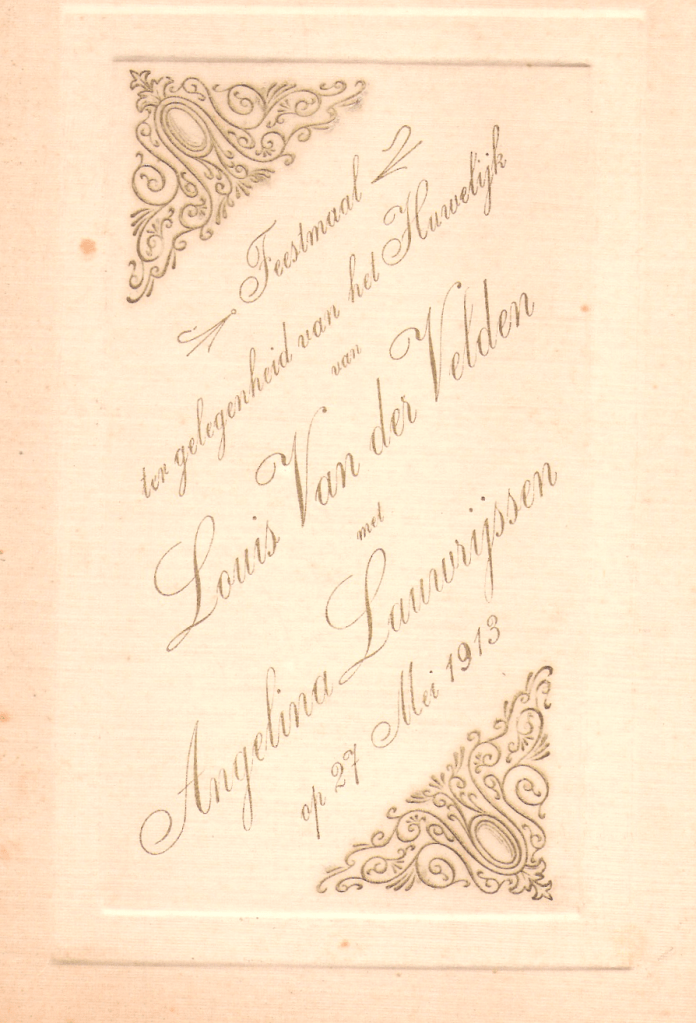 Feestmaal
ter gelegenheid van het Huwelijk
van
Louis Van der Velden
met
Angelina Lauwrijssen
op 27 Mei 1913